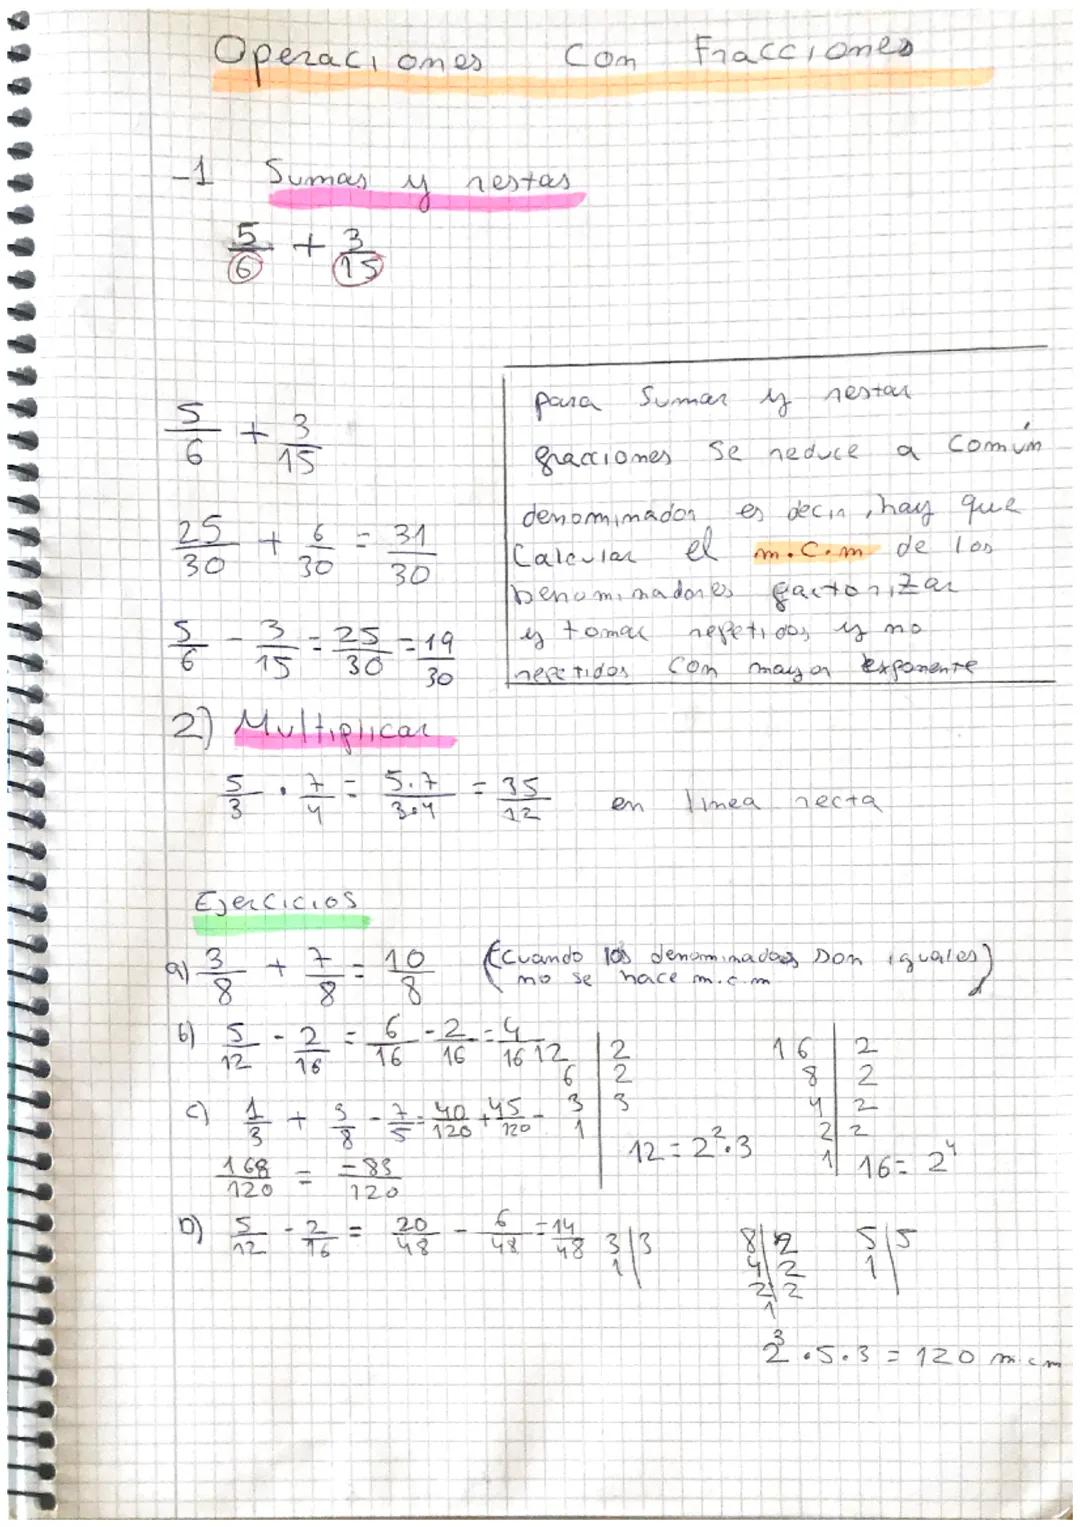 Operaciones Con Fracciones
-1 Sumas y restas
5/6 + 3/15
5/6 + 3/15
25/30 + 6/30 = 31/30
5/6 - 3/15 = 25/30 = 19/30
para Sumar y restar
fracciones se reduce a Común
denominador es decir, hay que
Calcular el m.c.m de los
Denominadores factorizar
y tomar repetidos y no
repetidos con mayor exponente
2) Multiplicar
5/3 · 7/4 = 5.7/3.4 = 35/12 en linea recta
Ejercicios
a) 3/8 + 7/8 = 10/8 (Cuando los denominadores son iguales)
no se hace m.c.m
b) 5/12 - 2/16 = 6/16 - 2/16 = 4/16
12 | 2
6 | 2
3 | 3
1
12 = 2².3
16 | 2
8 | 2
4 | 2
2 | 2
1
16 = 2⁴
c) 1/3 + 3/8 - 7/5 = 40/120 + 45/120 -
168/120 = -83/120
D) 5/12 - 2/16 = 20/48 - 6/48 = 14/48
3 | 3
1
8 | 2
4 | 2
2 | 2
1
5 | 5
1
2³.5.3 = 120 m.c.m